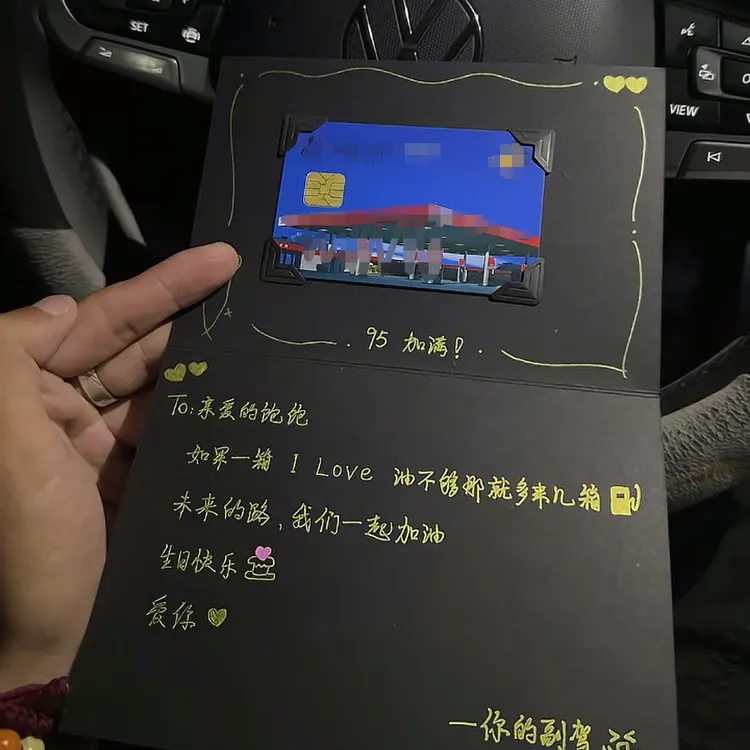 SET
VIEW
95 加满!
To:亲爱的饱饱
如果一箱 I Love 油不够那就多来几箱
未来的路,我们一起加油
生日快乐
爱你
—你的副驾